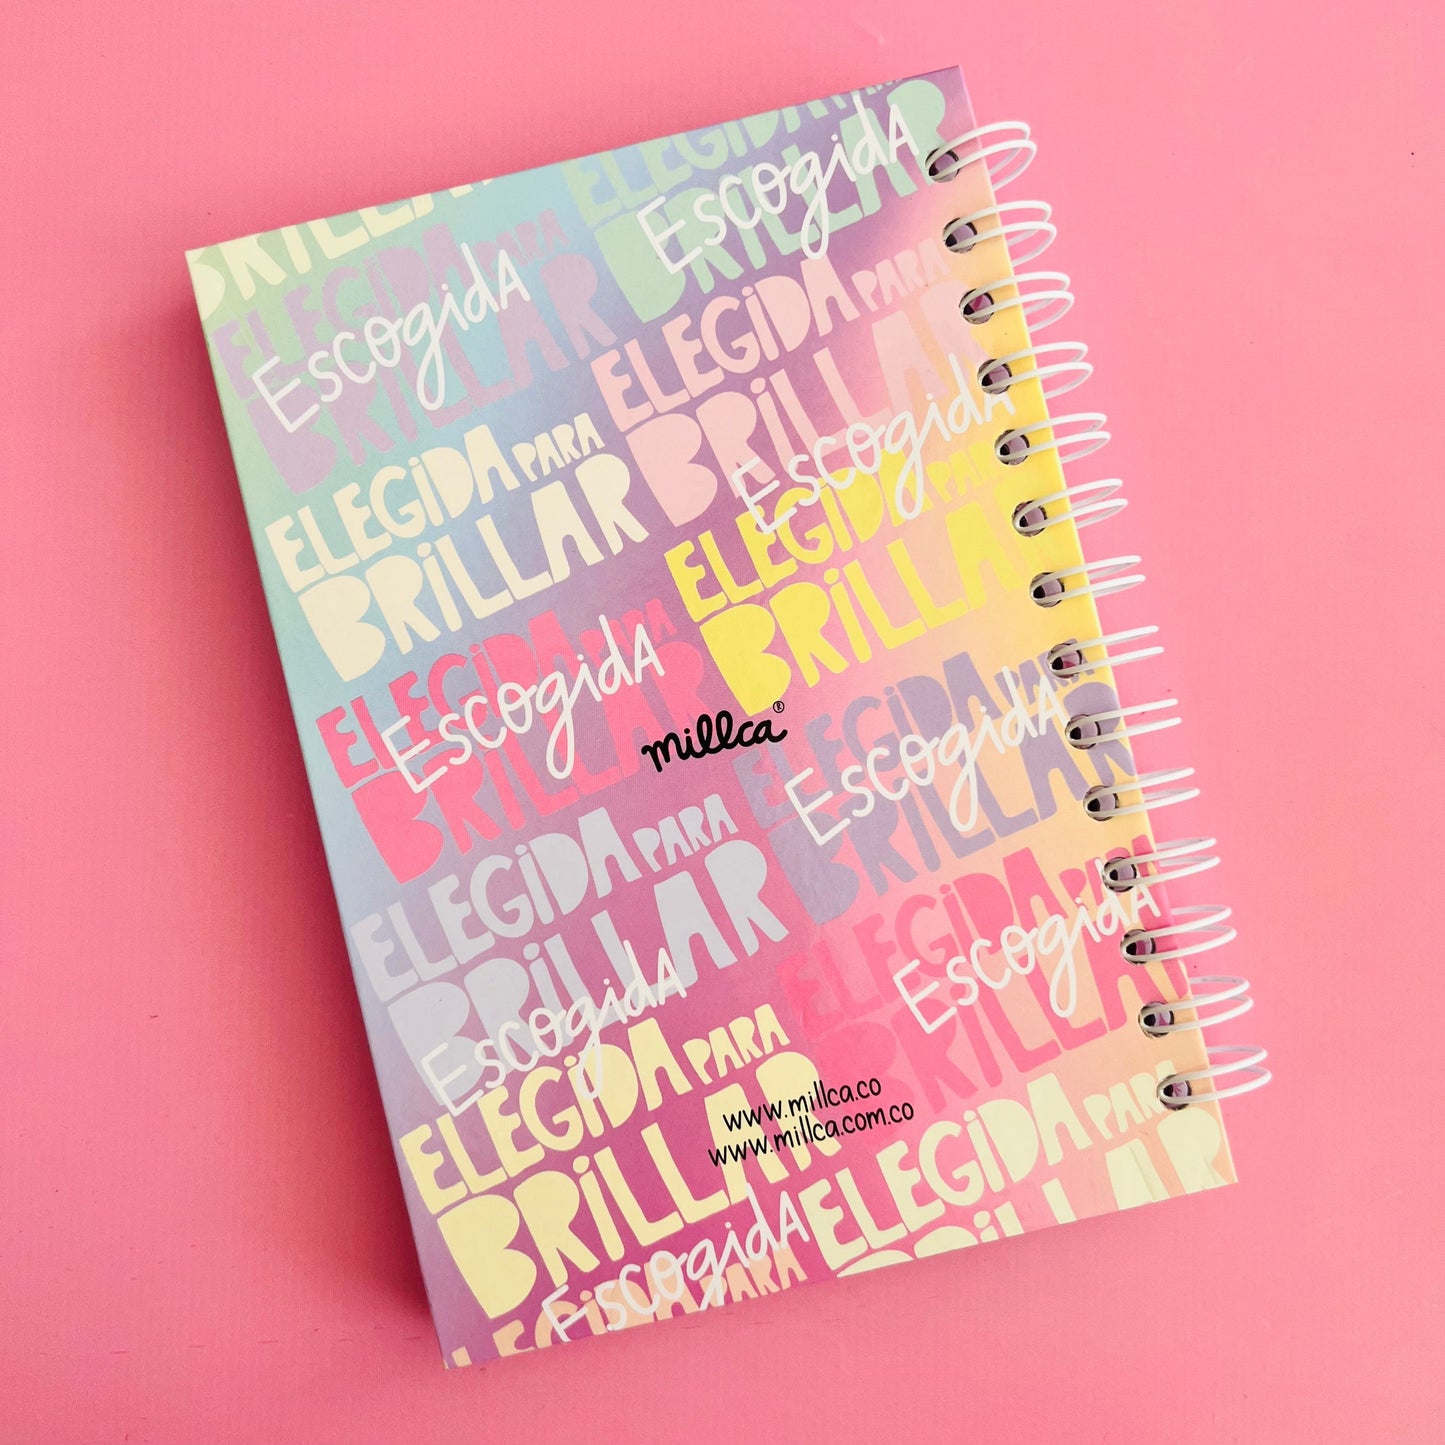 BRILLAR
ELEGIDA PARA
BRILLAR
EscogidA
ELEGIDA PARA
BRILLAR
EscogidA
ELEGIDA PARA
BRILLAR
EscogidA
ELEGIDA PARA
BRILLAR
ELEGIDA PARA
BRILLAR
ELEGIDA PARA
BRILLAR
EscogidA
millca®
ELEGIDA PARA
BRILLAR
EscogidA
ELEGIDA PARA
BRILLAR
ELEGIDA PARA
BRILLAR
EscogidA
EscogidA
ELEGIDA PARA
BRILLAR
www.millca.co
www.millca.com.co
ELEGIDA PARA
BRILLAR
EscogidA
ELEGIDA PARA